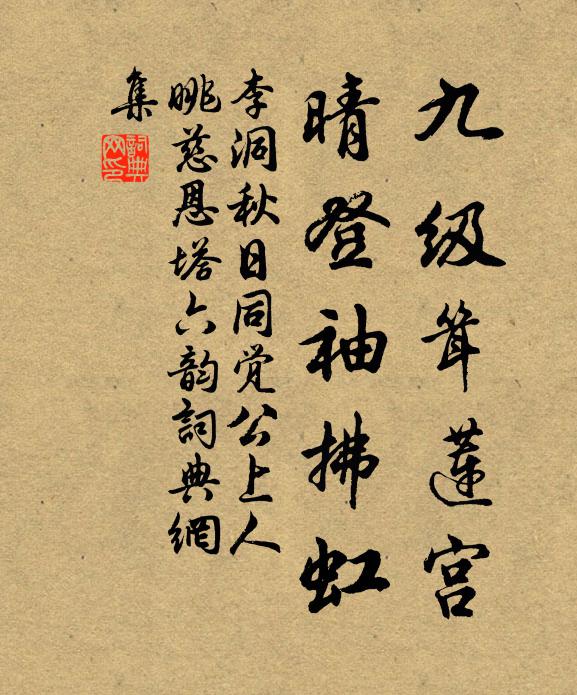 九级耸莲宫
晴登袖拂虹
李洞秋日同觉公上人
眺慈恩塔六韵词典網
集
詞典
网印